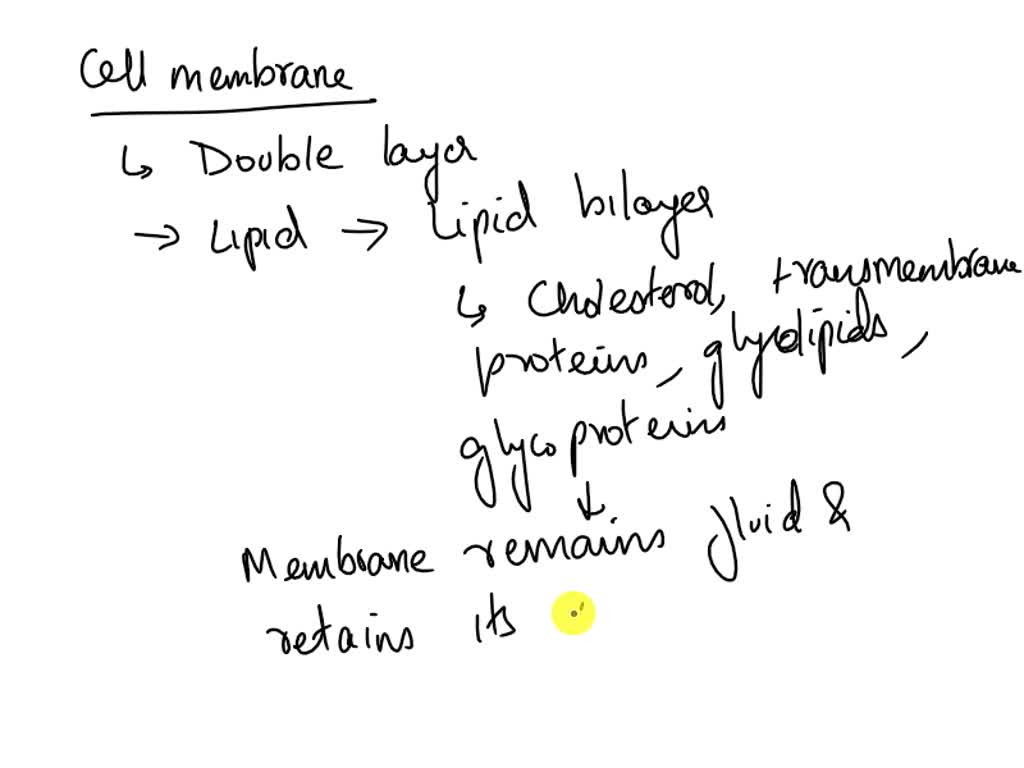 Cell membrane
↳ Double layer
→ Lipid → Lipid bilayer
↳ Cholesterol, transmembrane
proteins, glycolipids,
glycoproteins
↓
Membrane remains fluid &
retains its